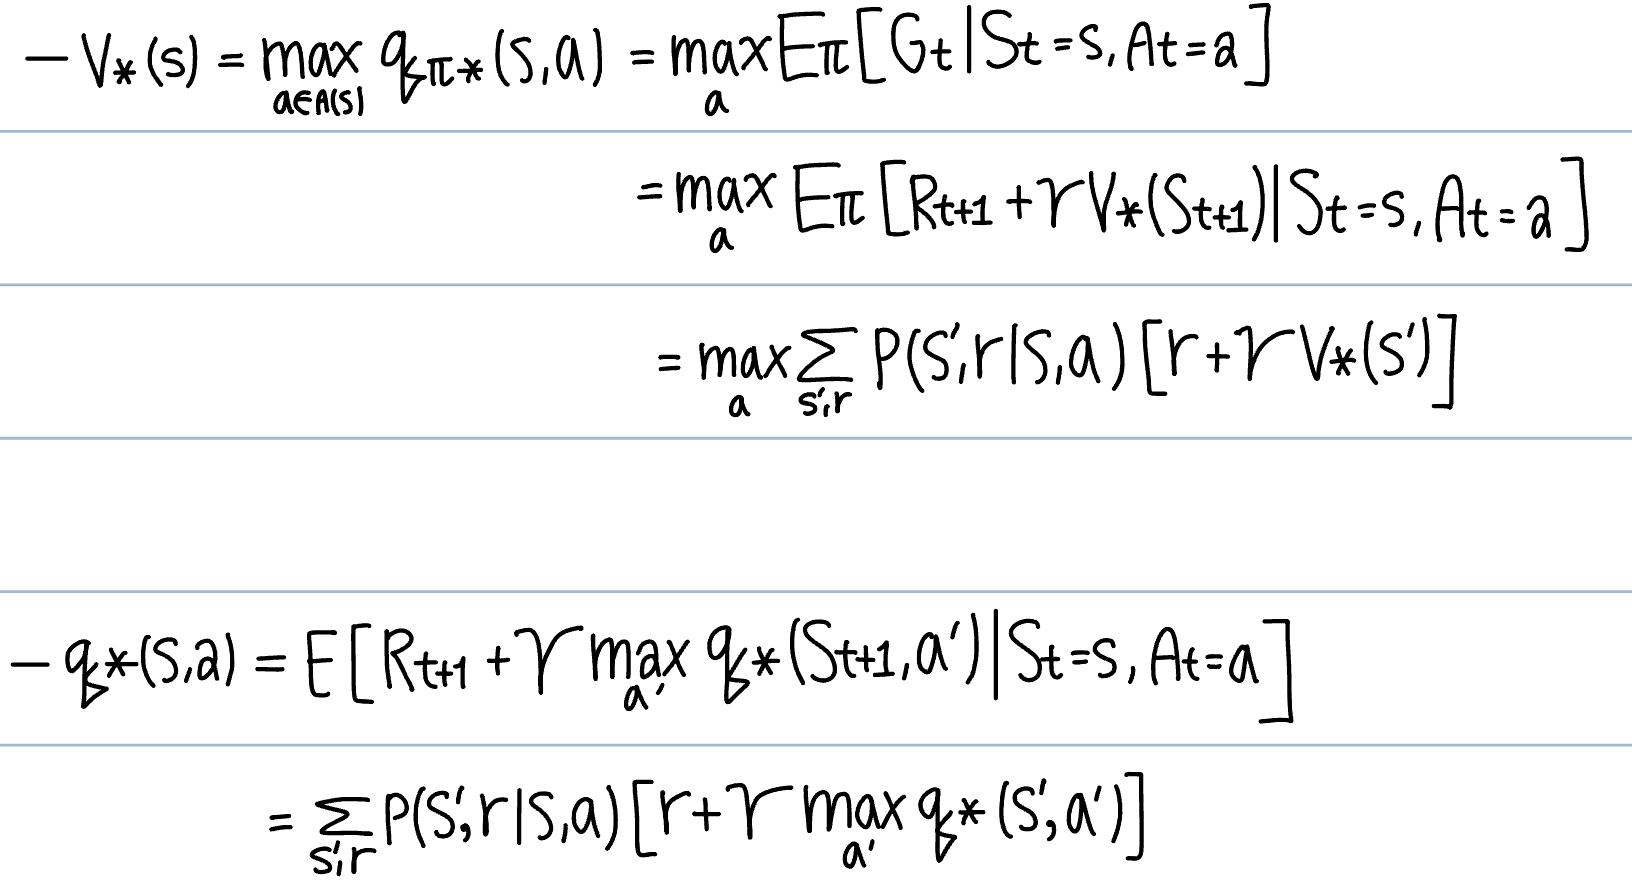 - V*(s) = max_{a∈A(s)} q_{π*}(s,a) = max_a Eπ[Gt|St=s, At=a]
= max_a Eπ[Rt+1 + γV*(St+1)|St=s, At=a]
= max_a Σ_{s',r} P(s',r|s,a)[r+γV*(s')]
- q*(s,a) = E[Rt+1 + γ max_{a'} q*(St+1,a')|St=s, At=a]
= Σ_{s',r} P(s',r|s,a)[r+γ max_{a'} q*(s',a')]